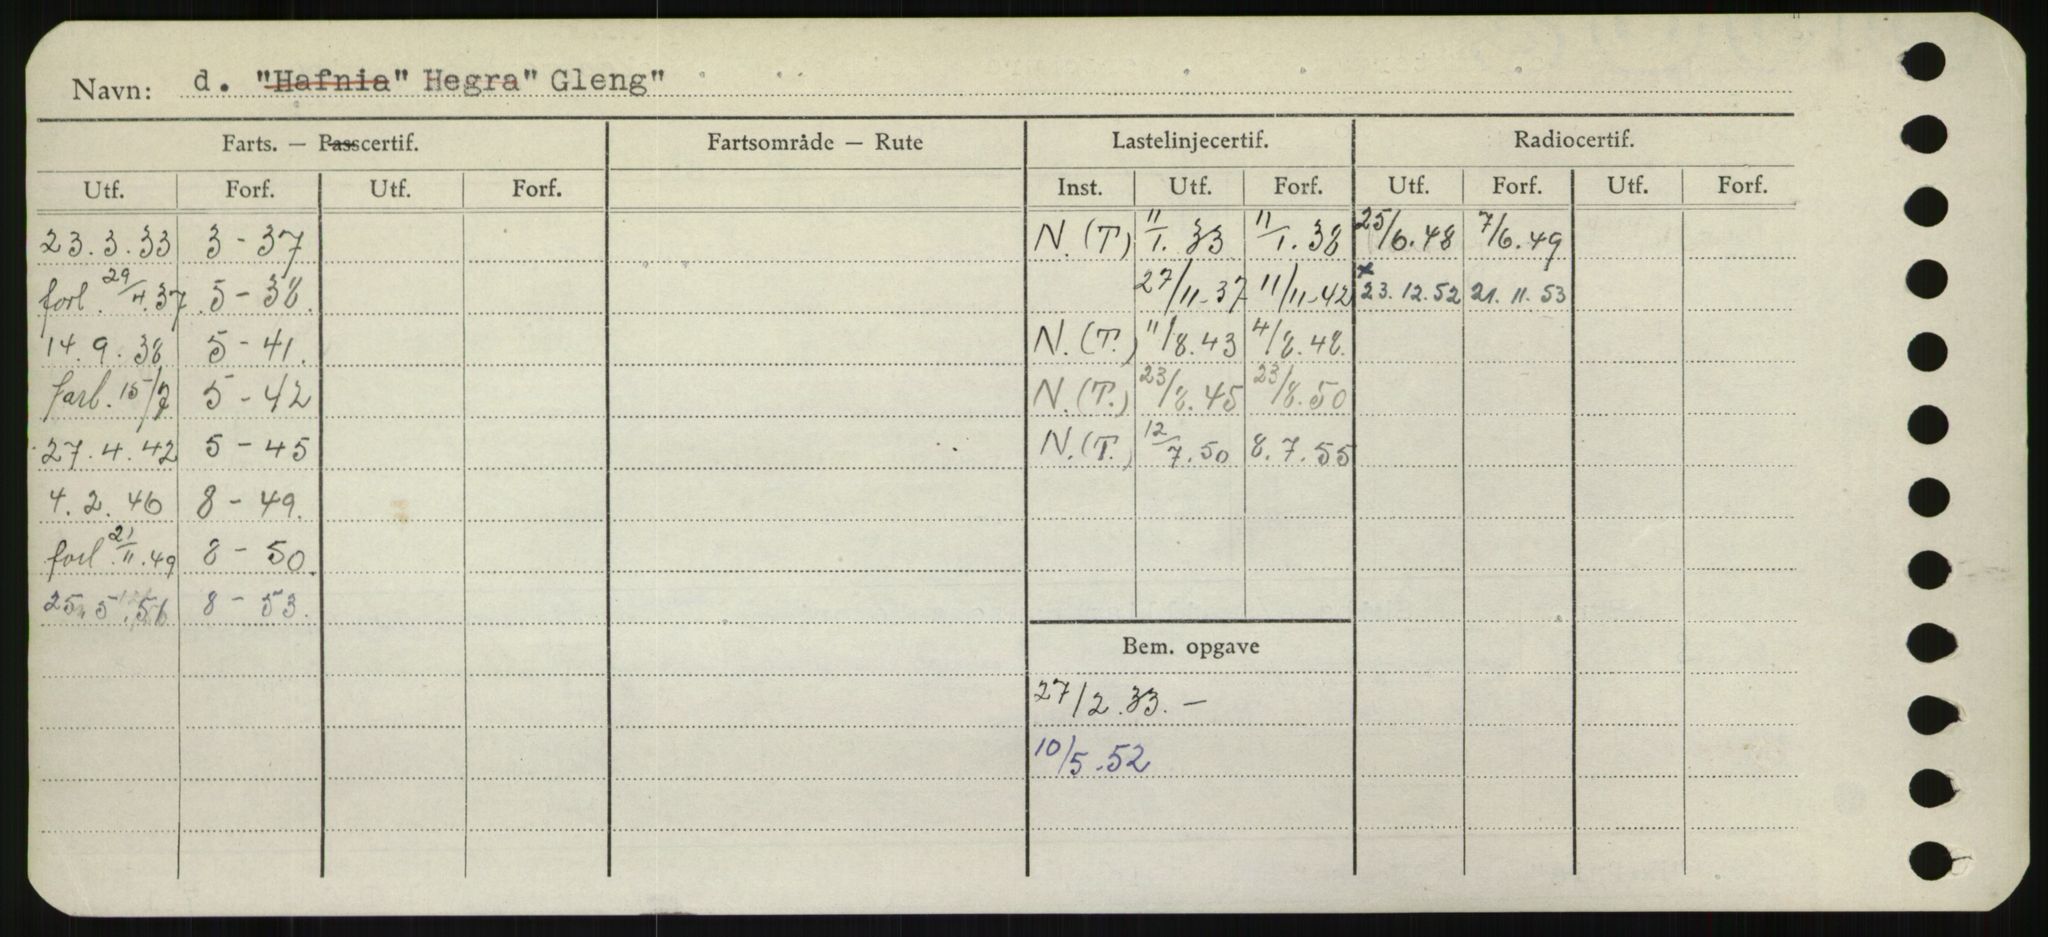 Navn: d. "Hafnia" Hegra" Gleng"
Farts. — Passcertif. Fartsområde — Rute Lastelinjecertif. Radiocertif.
Utf. Forf. Utf. Forf. Inst. Utf. Forf. Utf. Forf. Utf. Forf.
23.3.33 3-37 N.(T) 11/1.33 11/1.38 25/6.48 7/6.49
forl. 29/4.37 5-38. 27/11-37 11/11-42 x 23.12.52 21.11.53
14.9.38 5-41. N.(T.) 11/8.43 4/8.48.
forl. 5-42 N.(T.) 23/8.45 23/8.50
27.4.42 5-45 N.(T.) 12/7.50 8.7.55
4.2.46 8-49.
forl. 21/11.49 8-50.
8-53.
Bem. opgave
27/2.33.-
10/5.52